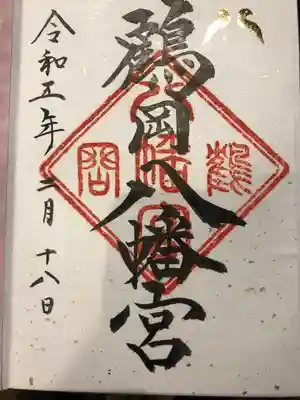 鶴岡八幡宮
令和五年二月十八日
鶴
岡